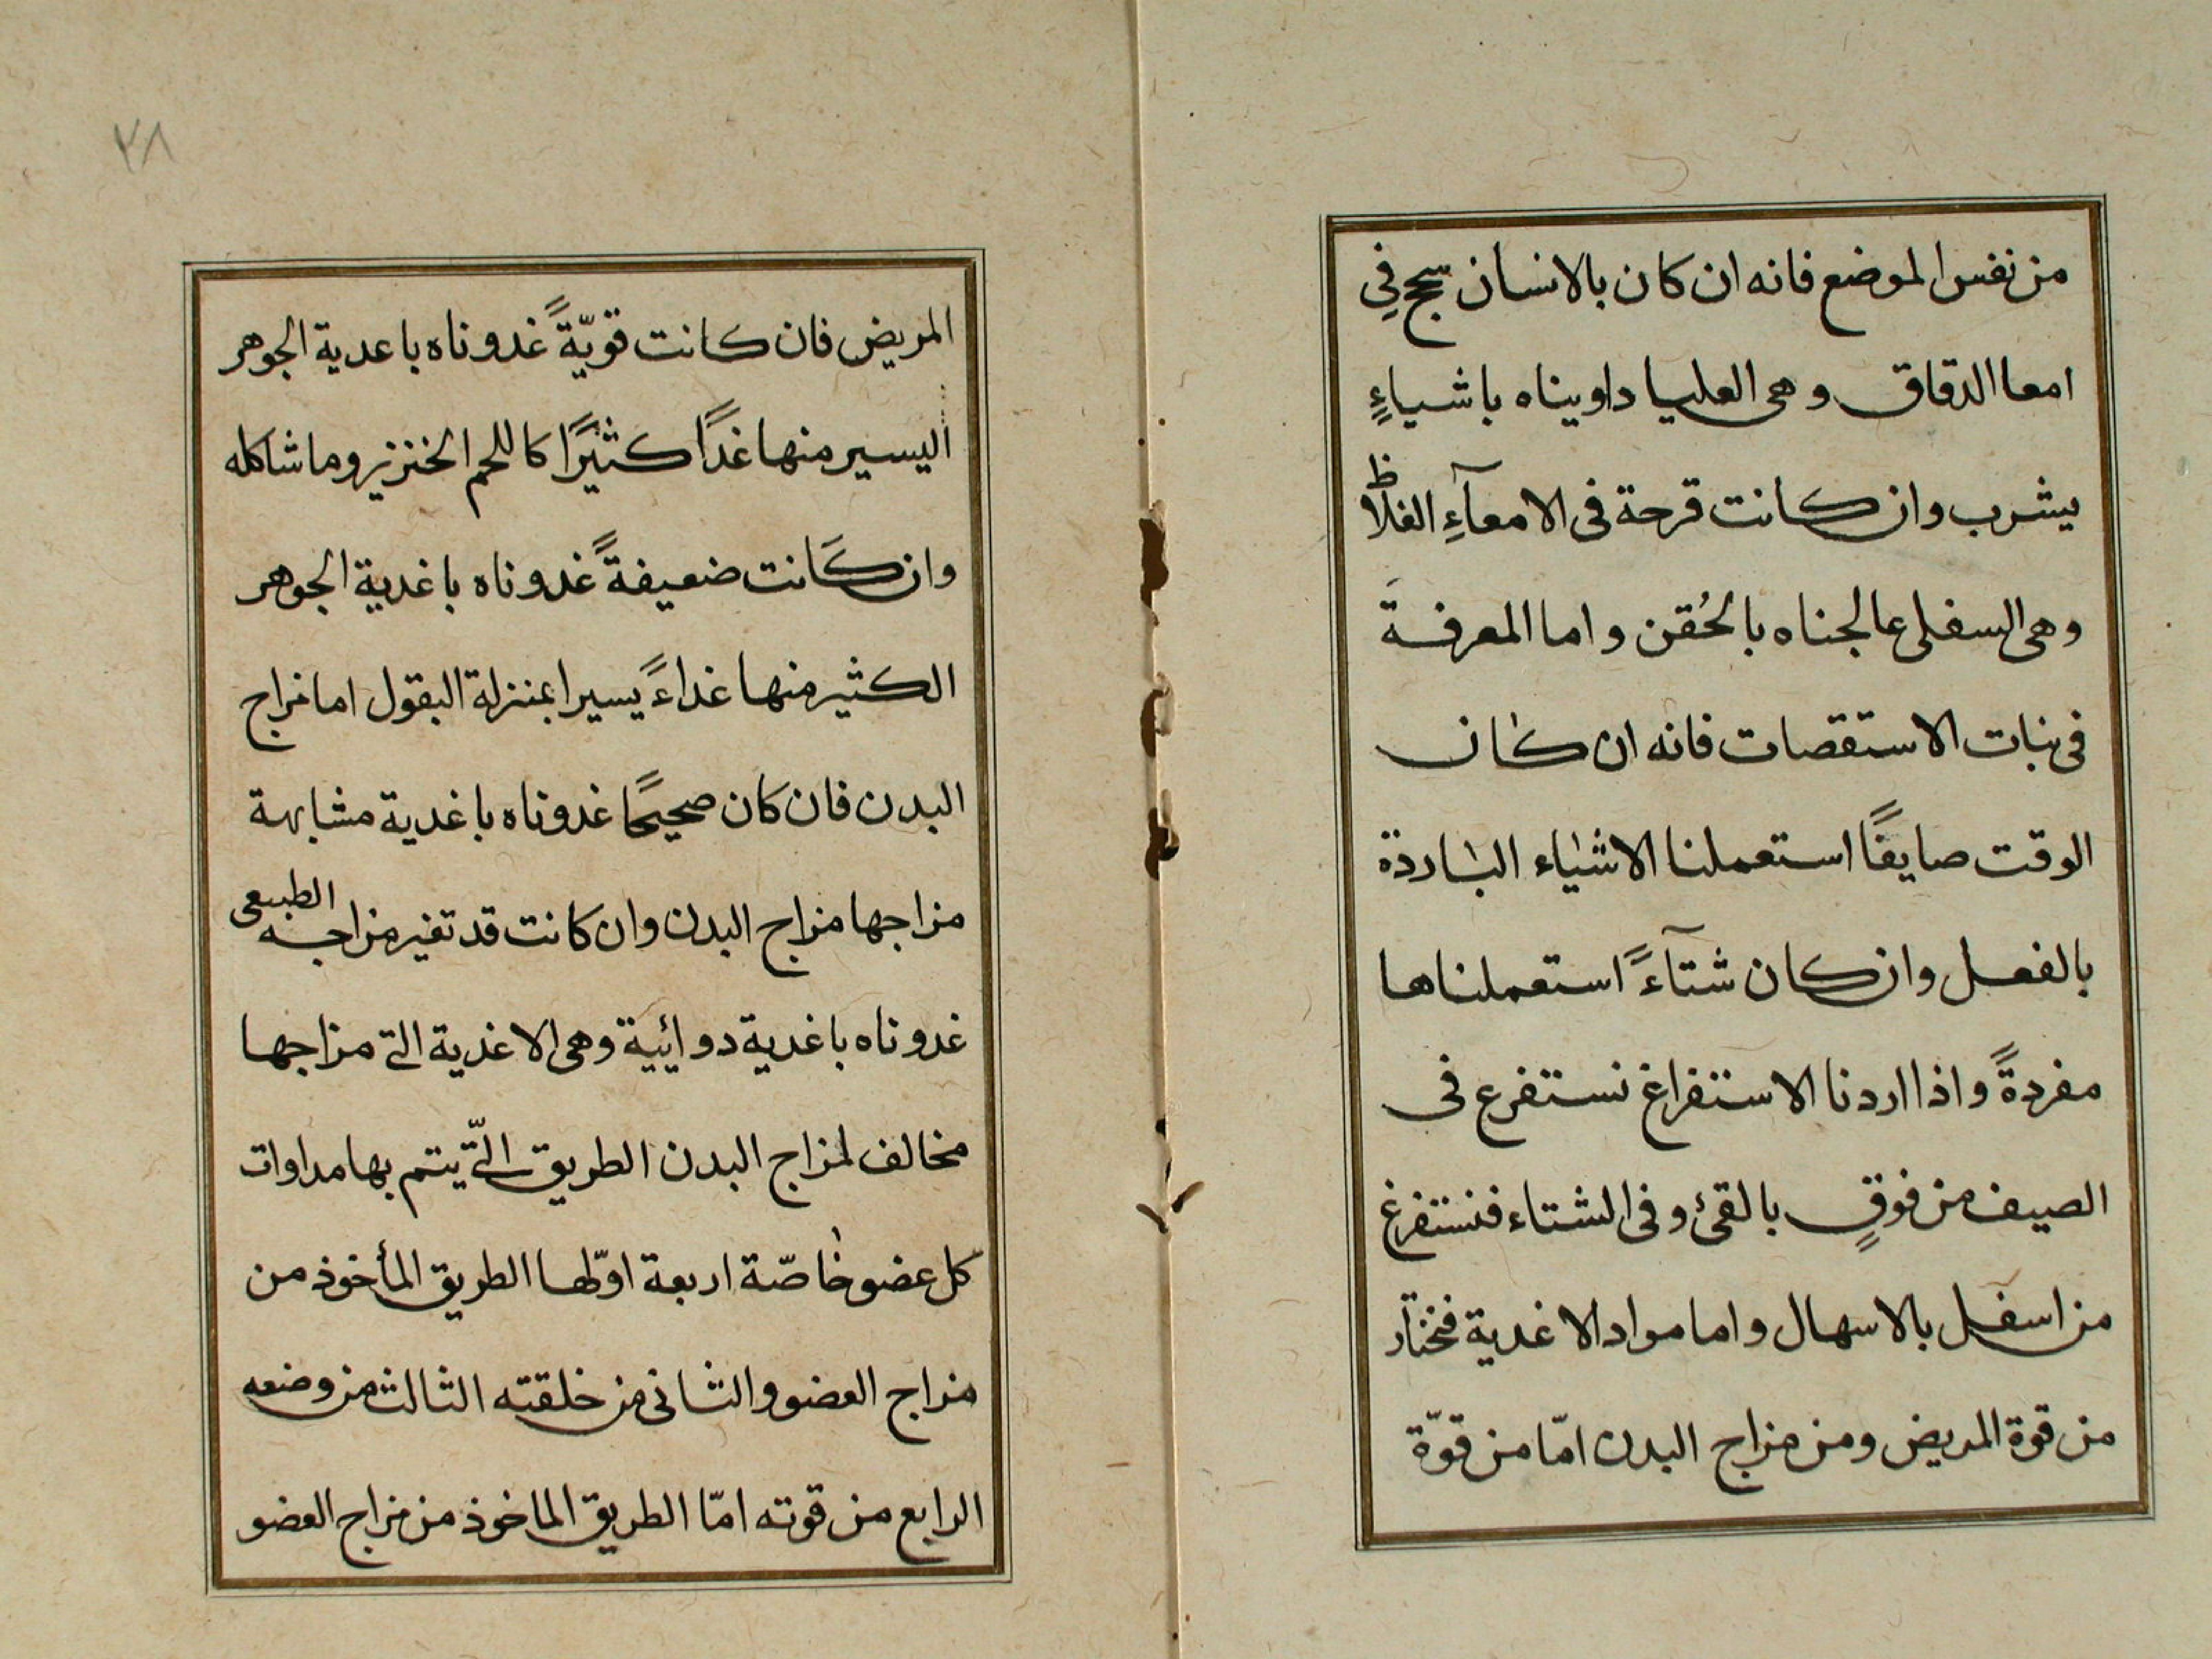 من نفس الموضع فانه ان كان بالانسان سحج في
امعا الدقاق وهى العليا داويناه باشياءٍ
يشرب وان كانت قرحة فى الامعآءِ الغلاظ
وهى السفلى عالجناه بالحُقن واما المعرفة
فى نبات الاستقصات فانه ان كان
الوقت صايفًا استعملنا الاشياء الباردة
بالفعل وان كان شتآءً استعملناها
مفردةً واذا اردنا الاستفراغ نستفرغ فى
الصيف من فوقٍ بالقئ وفى الشتاء فنستفرغ
من اسفل بالاسهال واما مواد الاغدية فنختار
من قوة المريض ومن مزاج البدن امّا من قوّة
٢٨
المريض فان كانت قويّةً غدوناه باعدية الجوهر
اليسير منها غدًا كثيرًا كاللحم الخنزير وما شاكله
وان كانت ضعيفةً غدوناه باغدية الجوهر
الكثير منها غداءً يسيرا بمنزلة البقول اما مزاج
البدن فان كان صحيحًا غدوناه باغدية مشابهة
مزاجها مزاج البدن وان كانت قد تغير مزاجه الطبيعى
غدوناه باغدية دوائية وهى الاغذية التى مزاجها
مخالف لمزاج البدن الطريق الّتى يتم بها مداوات
كل عضو خاصّة اربعة اوّلها الطريق المأخوذ من
مزاج العضو والثانى من خلقته الثالث من وضعه
الرابع من قوته امّا الطريق الماخوذ من مزاج العضو